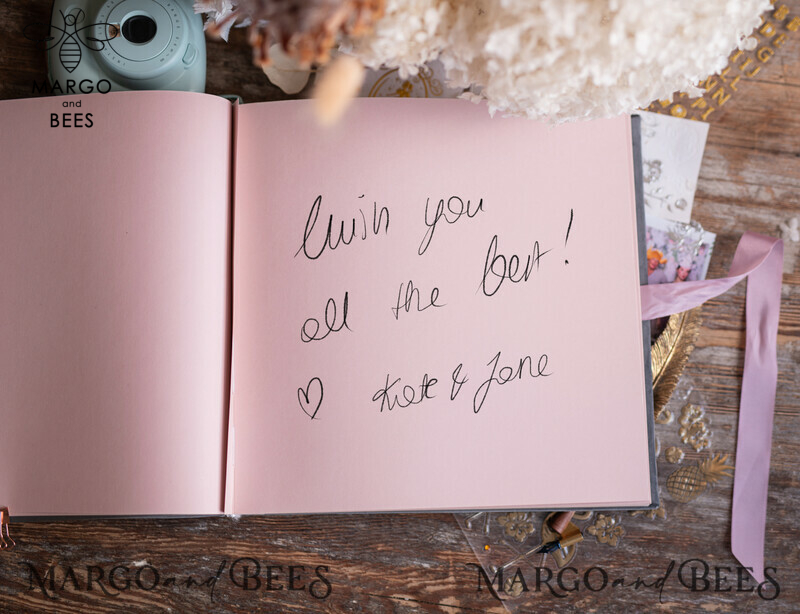 MARGO
and
BEES
I wish you
all the best!
♡ Kate & Jane
MARGO and BEES
MARGO and BEES